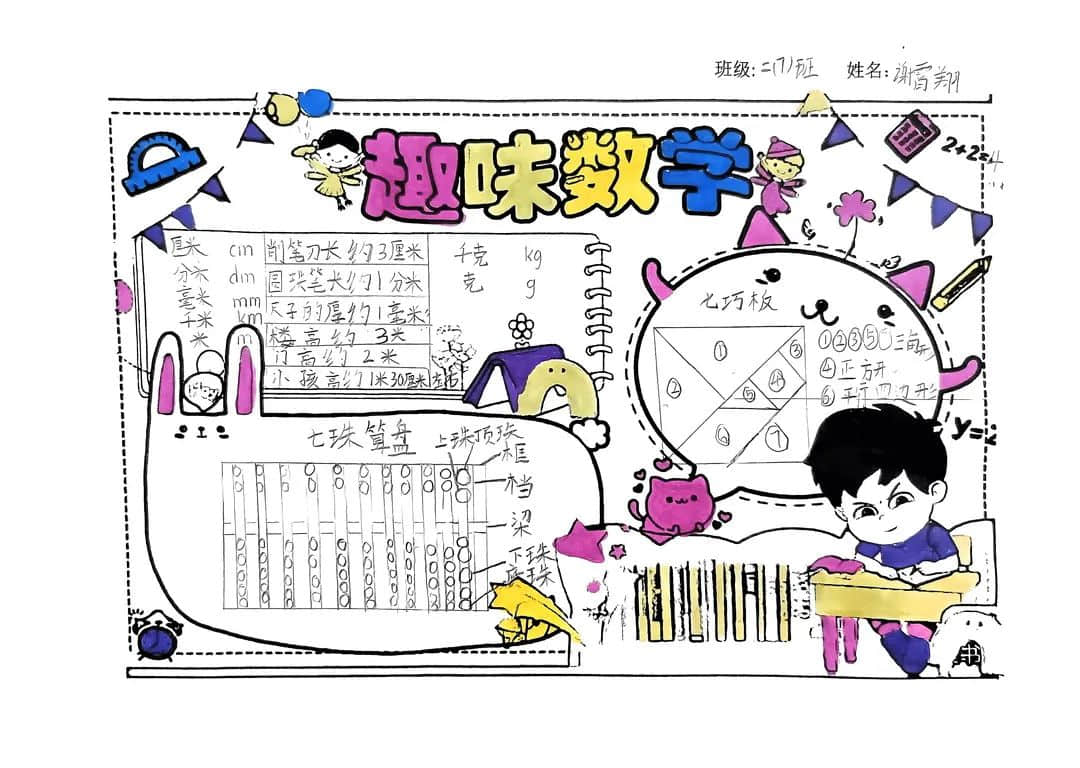 班级:二(7)班 姓名:谢霄翔
趣味数学
2+2=4
厘米 cm 削笔刀长约3厘米 千克 kg
分米 dm 圆珠笔长约1分米 克 g
毫米 mm 尺子的厚约1毫米
千米 km
米 m 楼高约3米
门高约2米
小孩高约1米30厘米左右
七巧板
①
②
③
④
⑤
⑥
⑦
①②③⑤⑦三角形
④正方形
⑥平行四边形
y=2
七珠算盘 上珠顶珠
框
档
梁
下珠
底珠
书